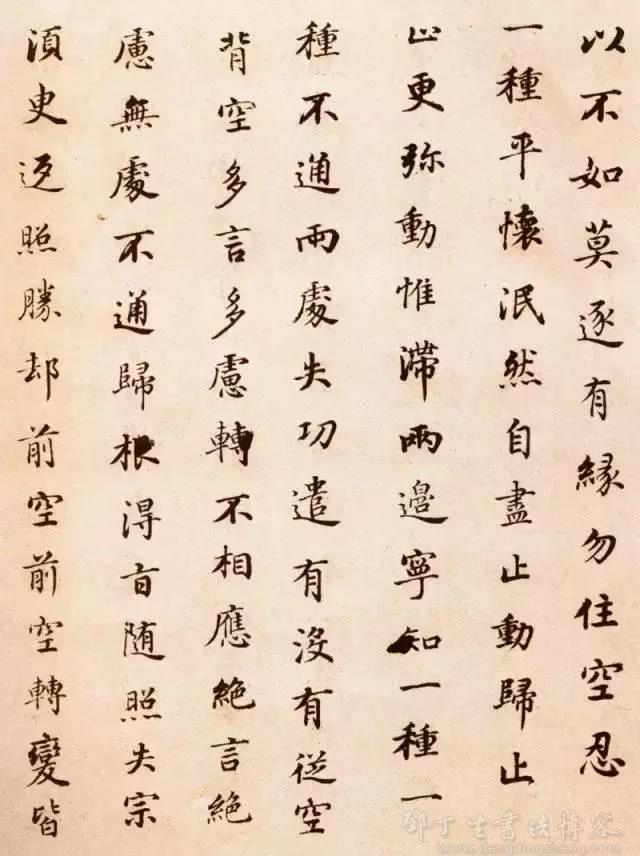 以不如莫逐有緣勿住空忍
一種平懷泯然自盡止動歸止
止更弥動惟滞兩邊寧知一種一
種不通兩處失功遣有沒有從空
背空多言多慮轉不相應絶言絶
慮無處不通歸根得旨随照失宗
須臾返照勝却前空前空轉變皆
鄧丁生書法博客
www.dengdingsheng.com